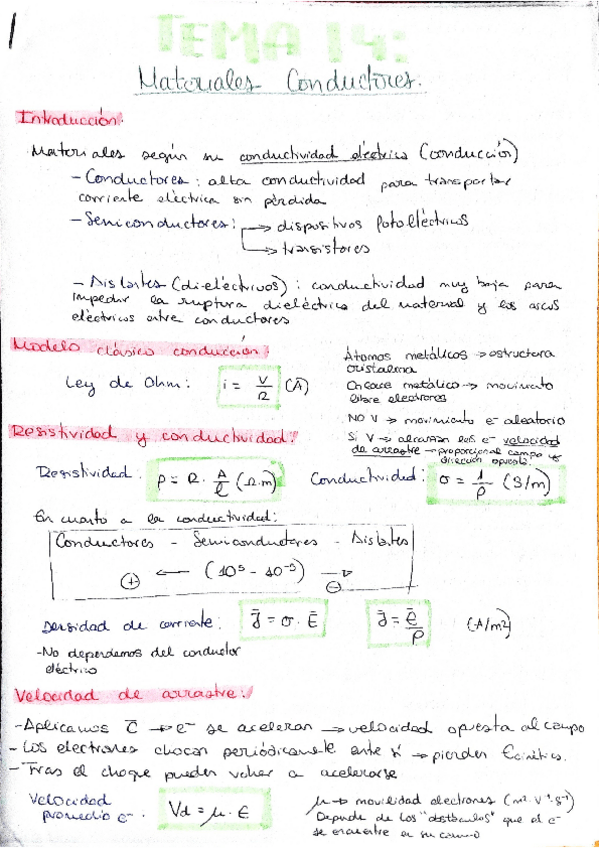 TEMA 14:
Materiales Conductores.
Introducción:
Materiales según su conductividad eléctrica (conducción)
- Conductores: alta conductividad para transportar
corriente eléctrica sin pérdida
- Semiconductores: → dispositivos fotoeléctricos
→ transistores
- Aislantes (dieléctricos): conductividad muy baja para
impedir la ruptura dieléctrica del material y los arcos
eléctricos entre conductores
Modelo clásico conducción:
Ley de Ohm: i = V/R (A)
Átomos metálicos → estructura
cristalina
Enlace metálico → movimiento
libre electrones
NO V → movimiento e⁻ aleatorio
Si V → alcanzan los e⁻ velocidad
de arrastre → proporcional campo y
dirección opuesta.
Resistividad y conductividad:
Resistividad: ρ = R · A/l (Ω·m)
Conductividad: σ = 1/ρ (S/m)
En cuanto a la conductividad:
Conductores - Semiconductores - Aislantes
(+) ← (10⁵ - 10⁻⁵) → (-)
Densidad de corriente: J̄ = σ · Ē
J̄ = Ē/ρ (A/m²)
- No dependemos del conductor
eléctrico
Velocidad de arrastre:
- Aplicamos → e⁻ se aceleran → velocidad opuesta al campo
- Los electrones chocan periódicamente → pierden Ecinética.
- Tras el choque pueden volver a acelerarse
Velocidad
promedio e⁻. Vd = μ · E
μ → movilidad electrones (m²·V⁻¹·s⁻¹)
Depende de los "obstáculos" que el e⁻
se encuentre en su camino